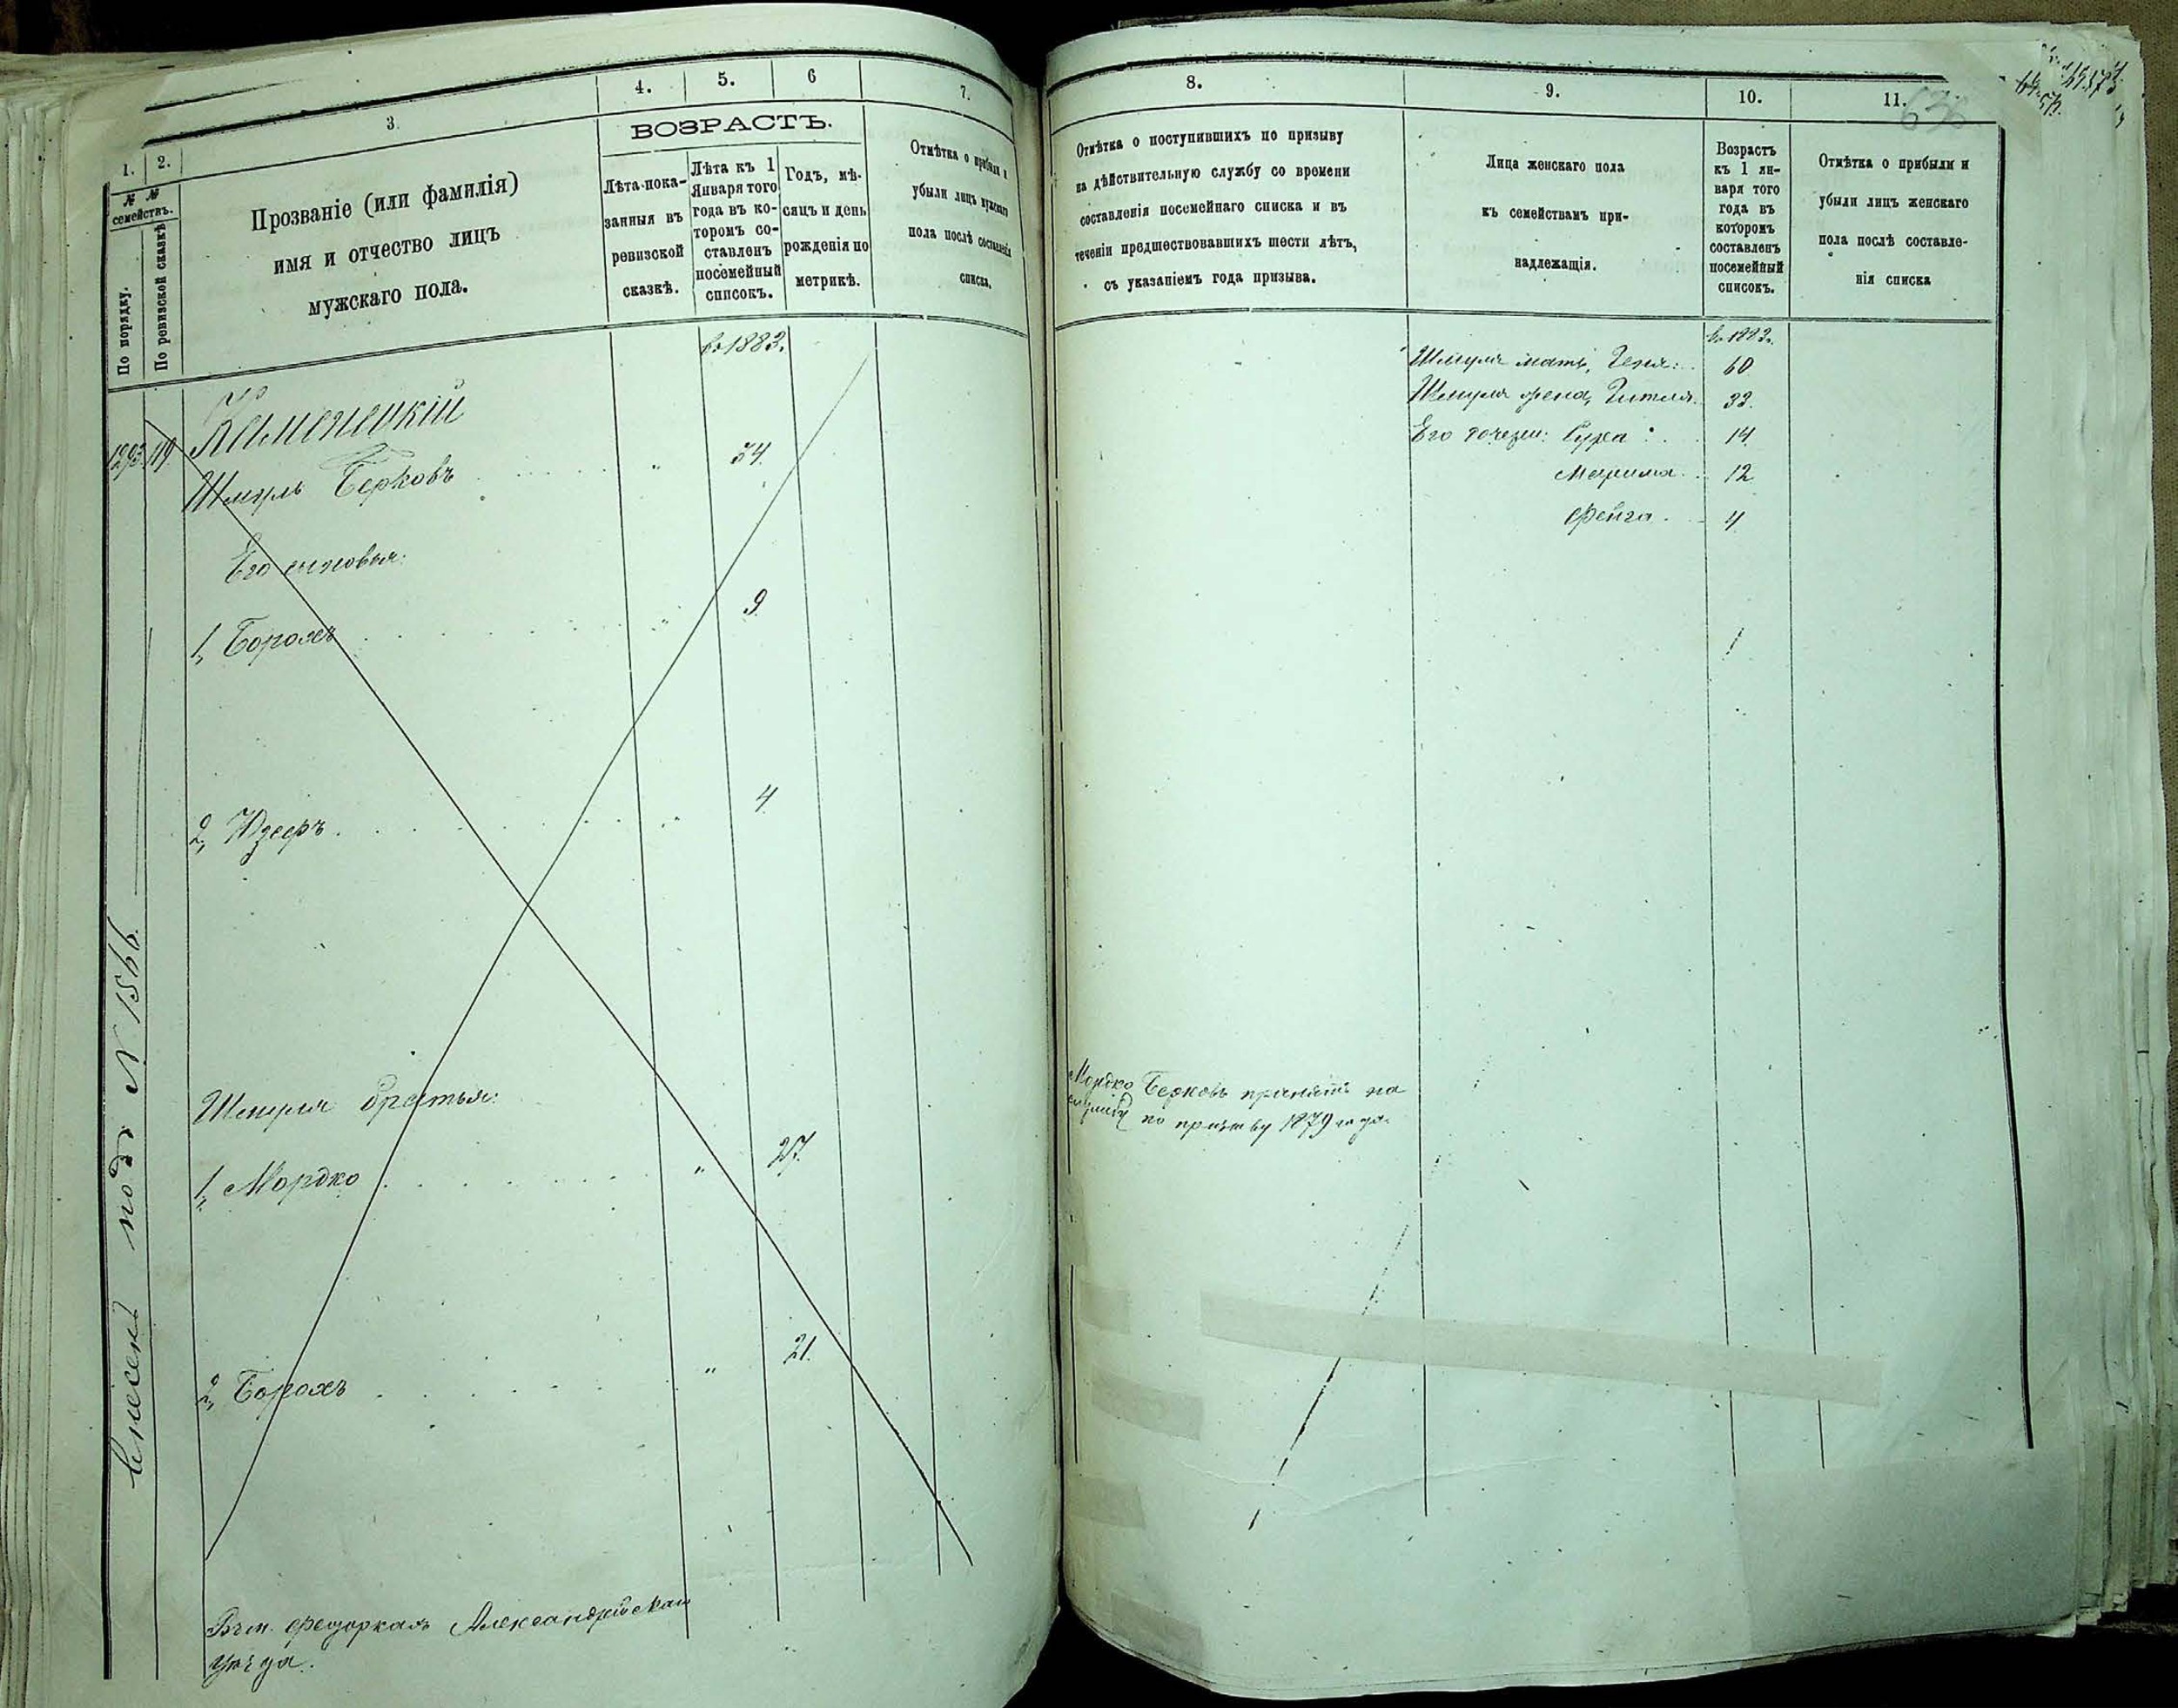 1.
2.
3.
4.
5.
6
7.
№ №
семействъ.
По порядку.
По ревизской сказкѣ
Прозваніе (или фамилія)
имя и отчество лицъ
мужскаго пола.
ВОЗРАСТЪ.
Лѣта пока-
занныя въ
ревизской
сказкѣ.
Лѣта къ 1
Января того
года въ ко-
торомъ со-
ставленъ
посемейный
списокъ.
Годъ, мѣ-
сяцъ и день
рожденія по
метрикѣ.
Отмѣтка о прибыли и
убыли лицъ мужскаго
пола послѣ составленія
списка.
въ 1883.
Каменецкій
119
Шмуль Берковъ " 34.
Его сыновья:
1, Борохъ " 9.
2, Юзеръ " 4
Шмуля братья:
1, Мордко " 27.
2, Борохъ " 21.
Внесенъ подъ № 1566.
Александрійскаго
уѣзда.
8.
9.
10.
11.
Отмѣтка о поступившихъ по призыву
на дѣйствительную службу со времени
составленія посемейнаго списка и въ
теченіи предшествовавшихъ шести лѣтъ,
съ указаніемъ года призыва.
Лица женскаго пола
къ семействамъ при-
надлежащія.
Возрастъ
къ 1 ян-
варя того
года въ
которомъ
составленъ
посемейный
списокъ.
Отмѣтка о прибыли и
убыли лицъ женскаго
пола послѣ составле-
нія списка
въ 1883.
Шмуля мать, Геня: 60
Шмуля жена, Гитля 33.
Его дочери: Сура: 14
Марима 12
Фейга. 4
Мордко Берковъ принятъ на
службу по призыву 1879 года.